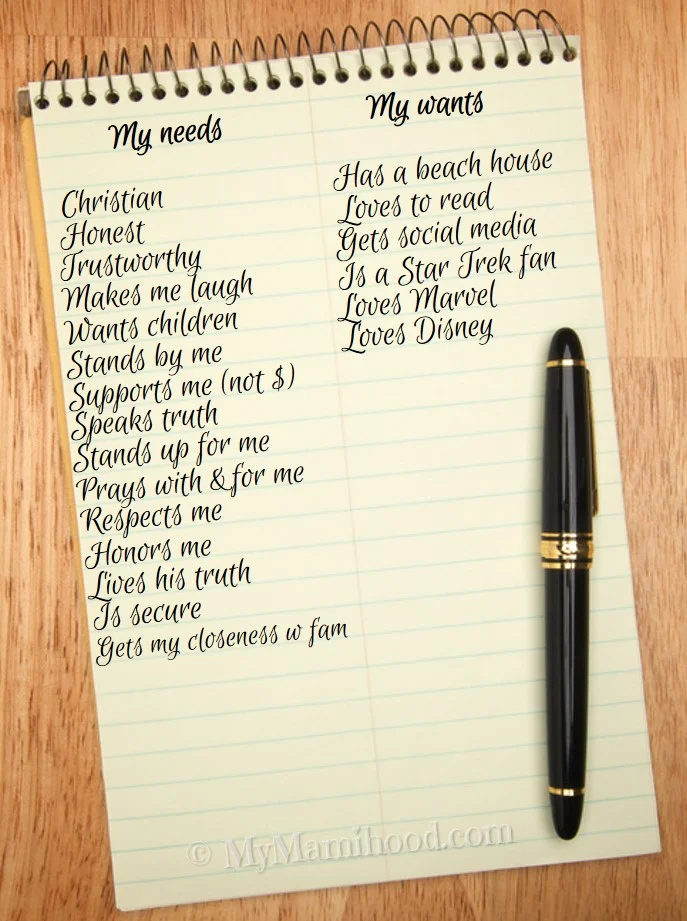 My needs
Christian
Honest
Trustworthy
Makes me laugh
Wants children
Stands by me
Supports me (not $)
Speaks truth
Stands up for me
Prays with & for me
Respects me
Honors me
Lives his truth
Is secure
Gets my closeness w fam
My wants
Has a beach house
Loves to read
Gets social media
Is a Star Trek fan
Loves Marvel
Loves Disney
© MyMamihood.com